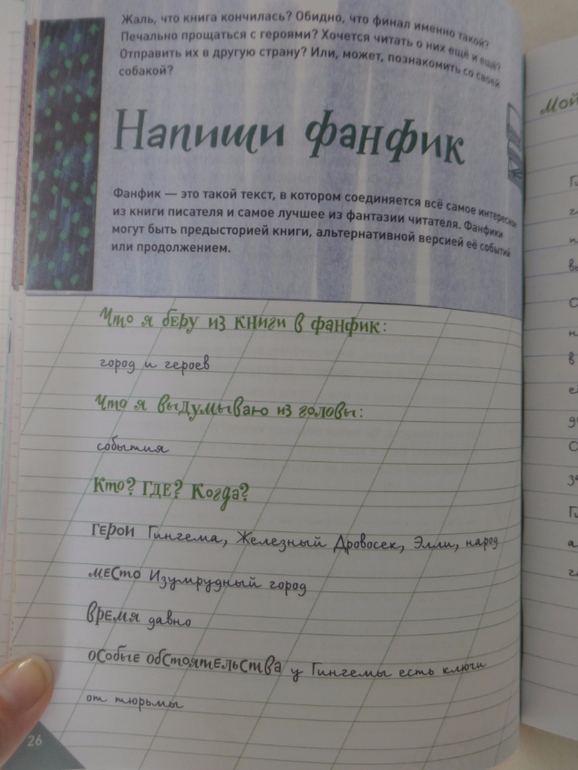 Жаль, что книга кончилась? Обидно, что финал именно такой?
Печально прощаться с героями? Хочется читать о них ещё и ещё?
Отправить их в другую страну? Или, может, познакомить со своей
собакой?
Напиши фанфик
Фанфик — это такой текст, в котором соединяется всё самое интересное
из книги писателя и самое лучшее из фантазии читателя. Фанфики
могут быть предысторией книги, альтернативной версией её событий
или продолжением.
Что я беру из книги в фанфик:
город и героев
Что я выдумываю из головы:
события
Кто? Где? Когда?
герои Гингема, Железный Дровосек, Элли, народ
место Изумрудный город
время давно
особые обстоятельства у Гингемы есть ключи
от тюрьмы
26